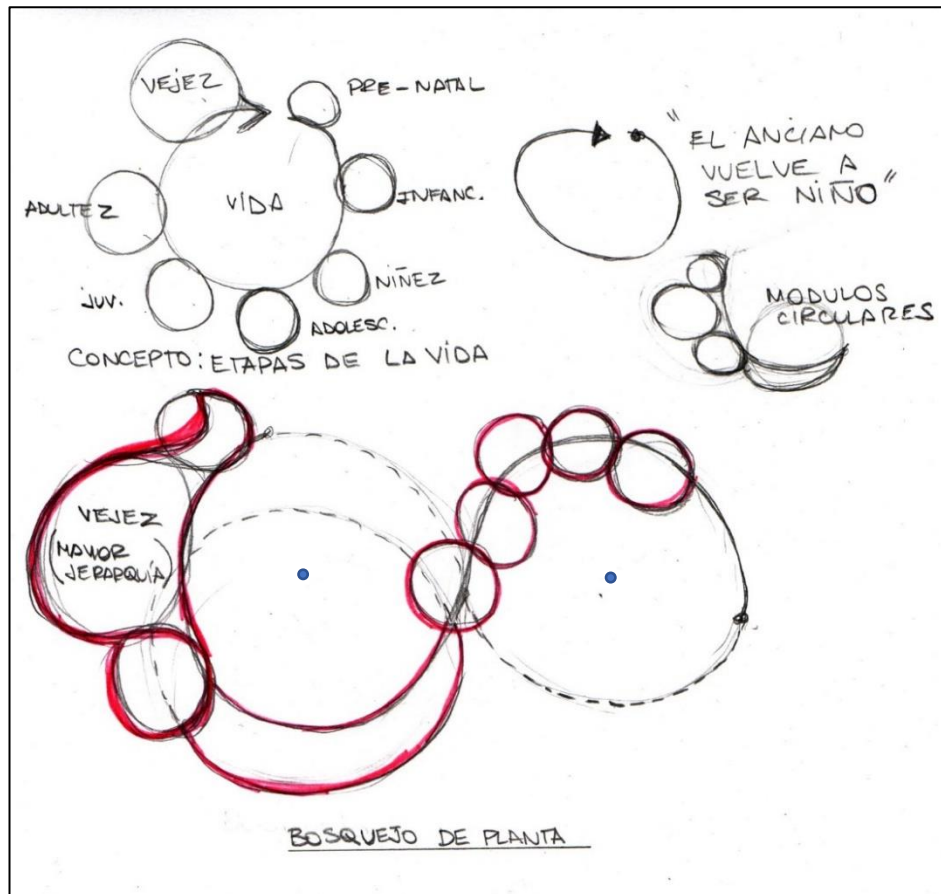 VEJEZ
PRE-NATAL
ADULTEZ
VIDA
INFANC.
JUV.
NIÑEZ
ADOLESC.
CONCEPTO: ETAPAS DE LA VIDA
"EL ANCIANO
VUELVE A
SER NIÑO"
MODULOS
CIRCULARES
VEJEZ
(MAYOR
JERARQUÍA)
BOSQUEJO DE PLANTA